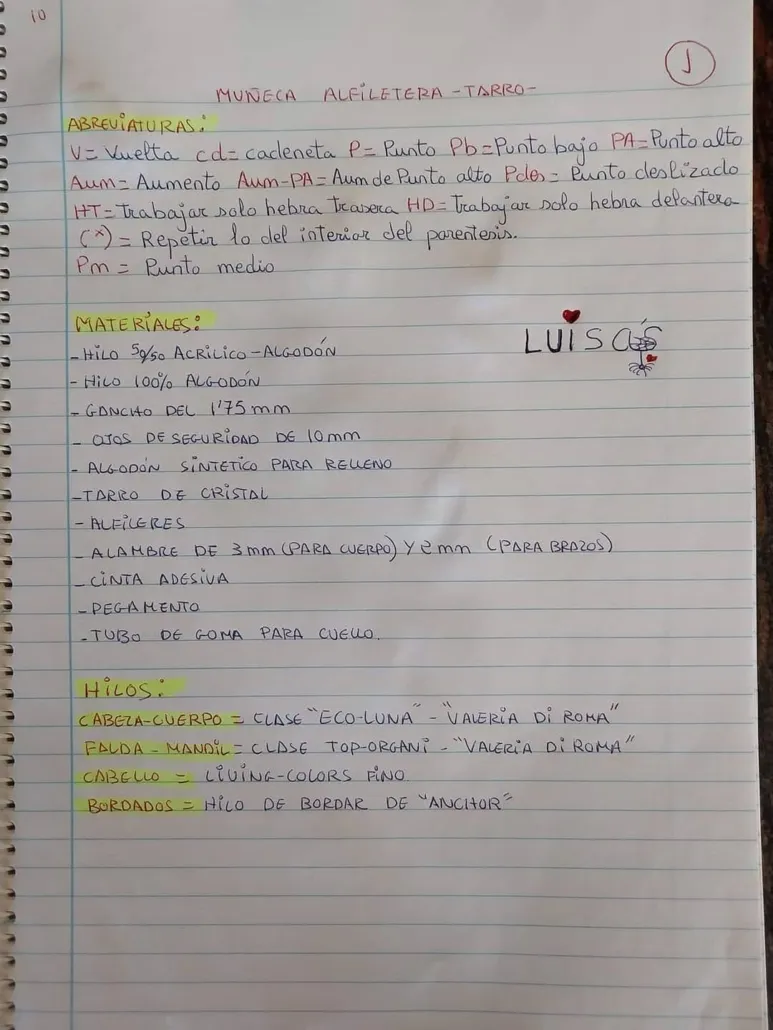 10
1
MUÑECA ALFILETERA -TARRO-
ABREVIATURAS:
V= Vuelta cd= cadeneta P= Punto Pb= Punto bajo PA= Punto alto
Aum= Aumento Aum-PA= Aum de Punto alto Pdes= Punto deslizado
HT= Trabajar solo hebra trasera HD= Trabajar solo hebra delantera
(*) = Repetir lo del interior del parentesis.
Pm = Punto medio
MATERIALES:
LUISA'S
- HILO 50/50 ACRILICO-ALGODÓN
- HILO 100% ALGODÓN
- GANCHO DEL 1'75 mm
- OJOS DE SEGURIDAD DE 10mm
- ALGODÓN SINTETICO PARA RELLENO
- TARRO DE CRISTAL
- ALFILERES
- ALAMBRE DE 3mm (PARA CUERPO) Y 2mm (PARA BRAZOS)
- CINTA ADESIVA
- PEGAMENTO
- TUBO DE GOMA PARA CUELLO.
HILOS:
CABEZA-CUERPO = CLASE "ECO-LUNA" - "VALERIA DI ROMA"
FALDA - MANDIL = CLASE TOP-ORGANI - "VALERIA DI ROMA"
CABELLO = LIVING-COLORS FINO
BORDADOS = HILO DE BORDAR DE "ANCHOR"